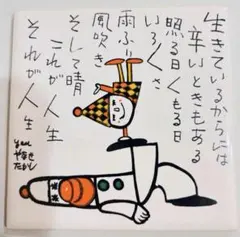 生きているからには
辛いときもある
照る日くもる日
いろいろ
雨ふり
風吹き
そして晴
これが人生
それが人生
やなせ
たかし